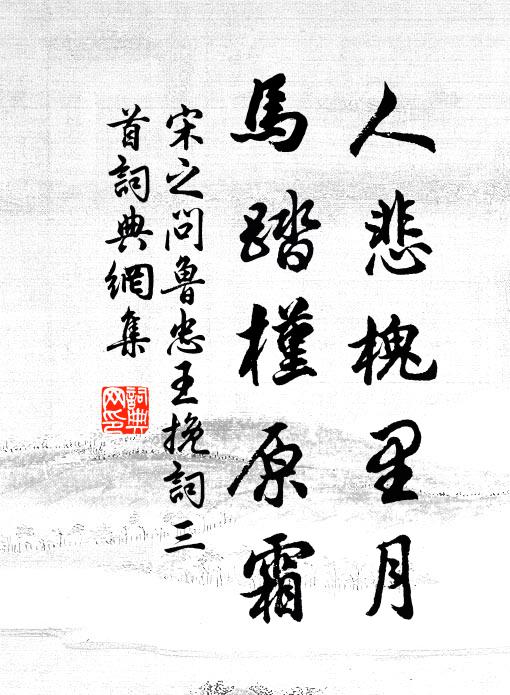 人悲槐里月
馬踏槿原霜
宋之问魯忠王挽詞三
首詞典網集
詞典
网印